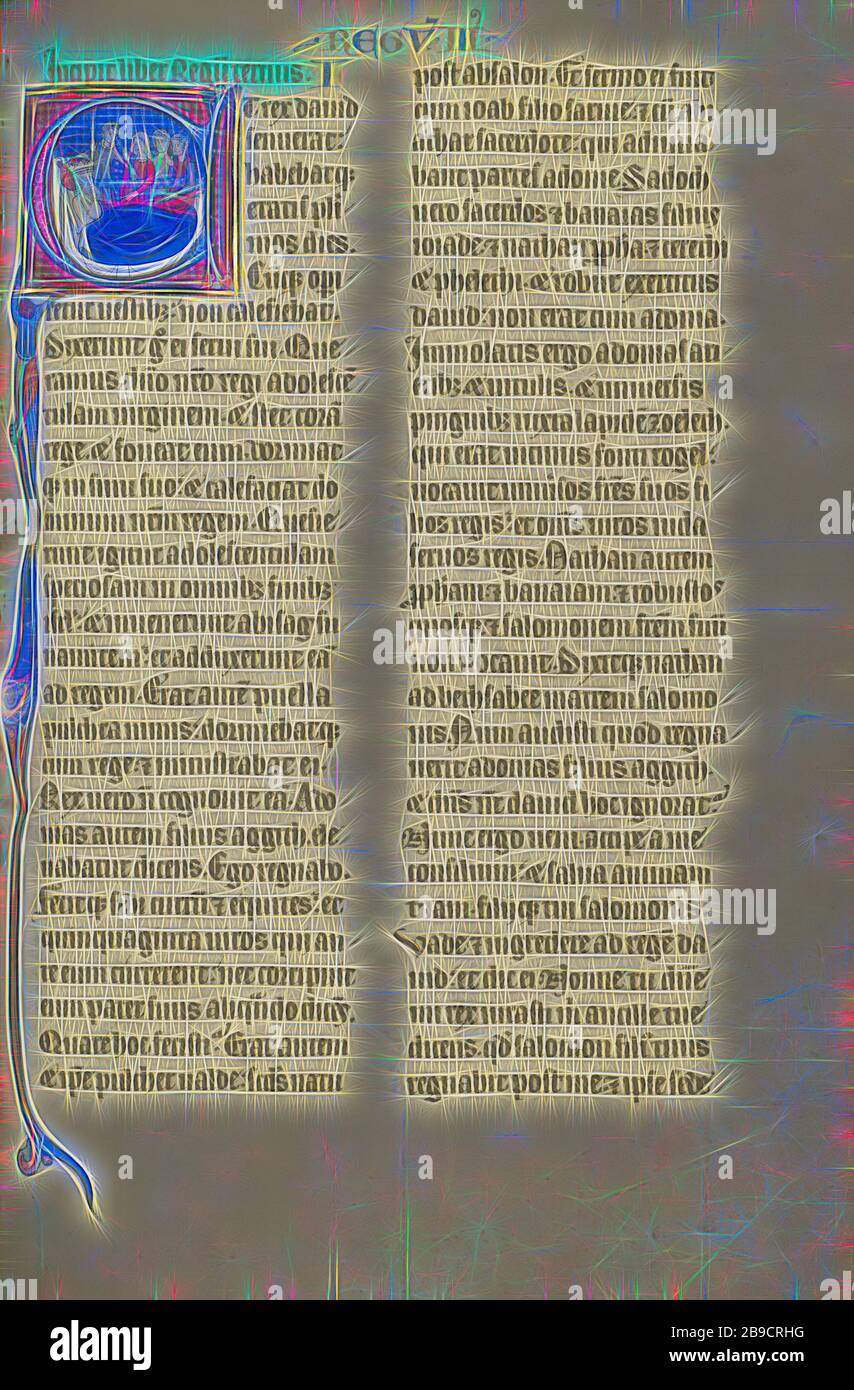 REGV. II
Incipit liber Regū tercius. I
t rex dauid
senuerat:
habebatq;
etatis plī
mos dies.
Cūq; opi
retur uestib;: non calefiebat.
Dixerunt g̊ ei serui sui. Que
ramus dn̄o nr̄o regi adolescē
tulam uirginem. & stet corā
rege & foueat eum. dormiat
q; in sinu suo: & calefaciat do
minum nr̄m regem. Quesie
runt igitur adolescentulam
speciosam in omnib; finib;
isrl̄. & inuenerunt abisag su
namitem: et adduxerunt eā
ad regem. Erat autē puella
pulchra nimis. dormiebatq;
cum rege: & ministrabat ei.
Rex uero n̄ cognouit eā. Ado
nias autem filius aggith. ele
uabatur dicens. Ego regnabo.
Fecitq; sibi currū & equites: et
quinquaginta uiros qui an
te eum currerent: nec corripuit
eum pater suus aliqn̄do dicēs.
Quare hoc fecisti: Erat autem
& ip̄e pulcher ualde: scd̄s natu
post absalon. Et sermo ei fuit
cum ioab filio saruie: & cū abi
athar sacerdote: qui adiuua
bant partes adonie. Sadoch
uero sacerdos & banaias filius
ioiade & nathan ꝓpha & cerethi
& phelethi. & robur exercitus
dauid: non erat cum adonia.
Immolatis ergo adonias ari
etib; & uitulis & uniuersis
pinguib; iuxta lapidē zoeleth.
qui erat uicinus fonti rogel:
uocauit uniuersos fr̄es suos fi
lios regis: et om̄s uiros iuda
seruos regis. Nathan autem
ꝓpham & banaiam & robustos
quosq; & salomonem frēm suū
non uocauit. Dixit itaq; nathan
ad bethsabee matrem salomo
nis. Num audisti quod regna
uerit adonias filius aggith.
& dn̄s nr̄ dauid hoc ignorat:
Nunc ergo ueni. accipe a me
consilium: & salua animam
tuam. filiiq; tui salomonis.
Vade & ingredere ad regē da
uid: et dic ei. Nonne tu dn̄e
mi rex iurasti m̄ ancille tue
dicens. qd̄ salomon filius tuus
regnabit post me. & ipse sede
alamy
Image ID: 2B9CRHG
www.alamy.com